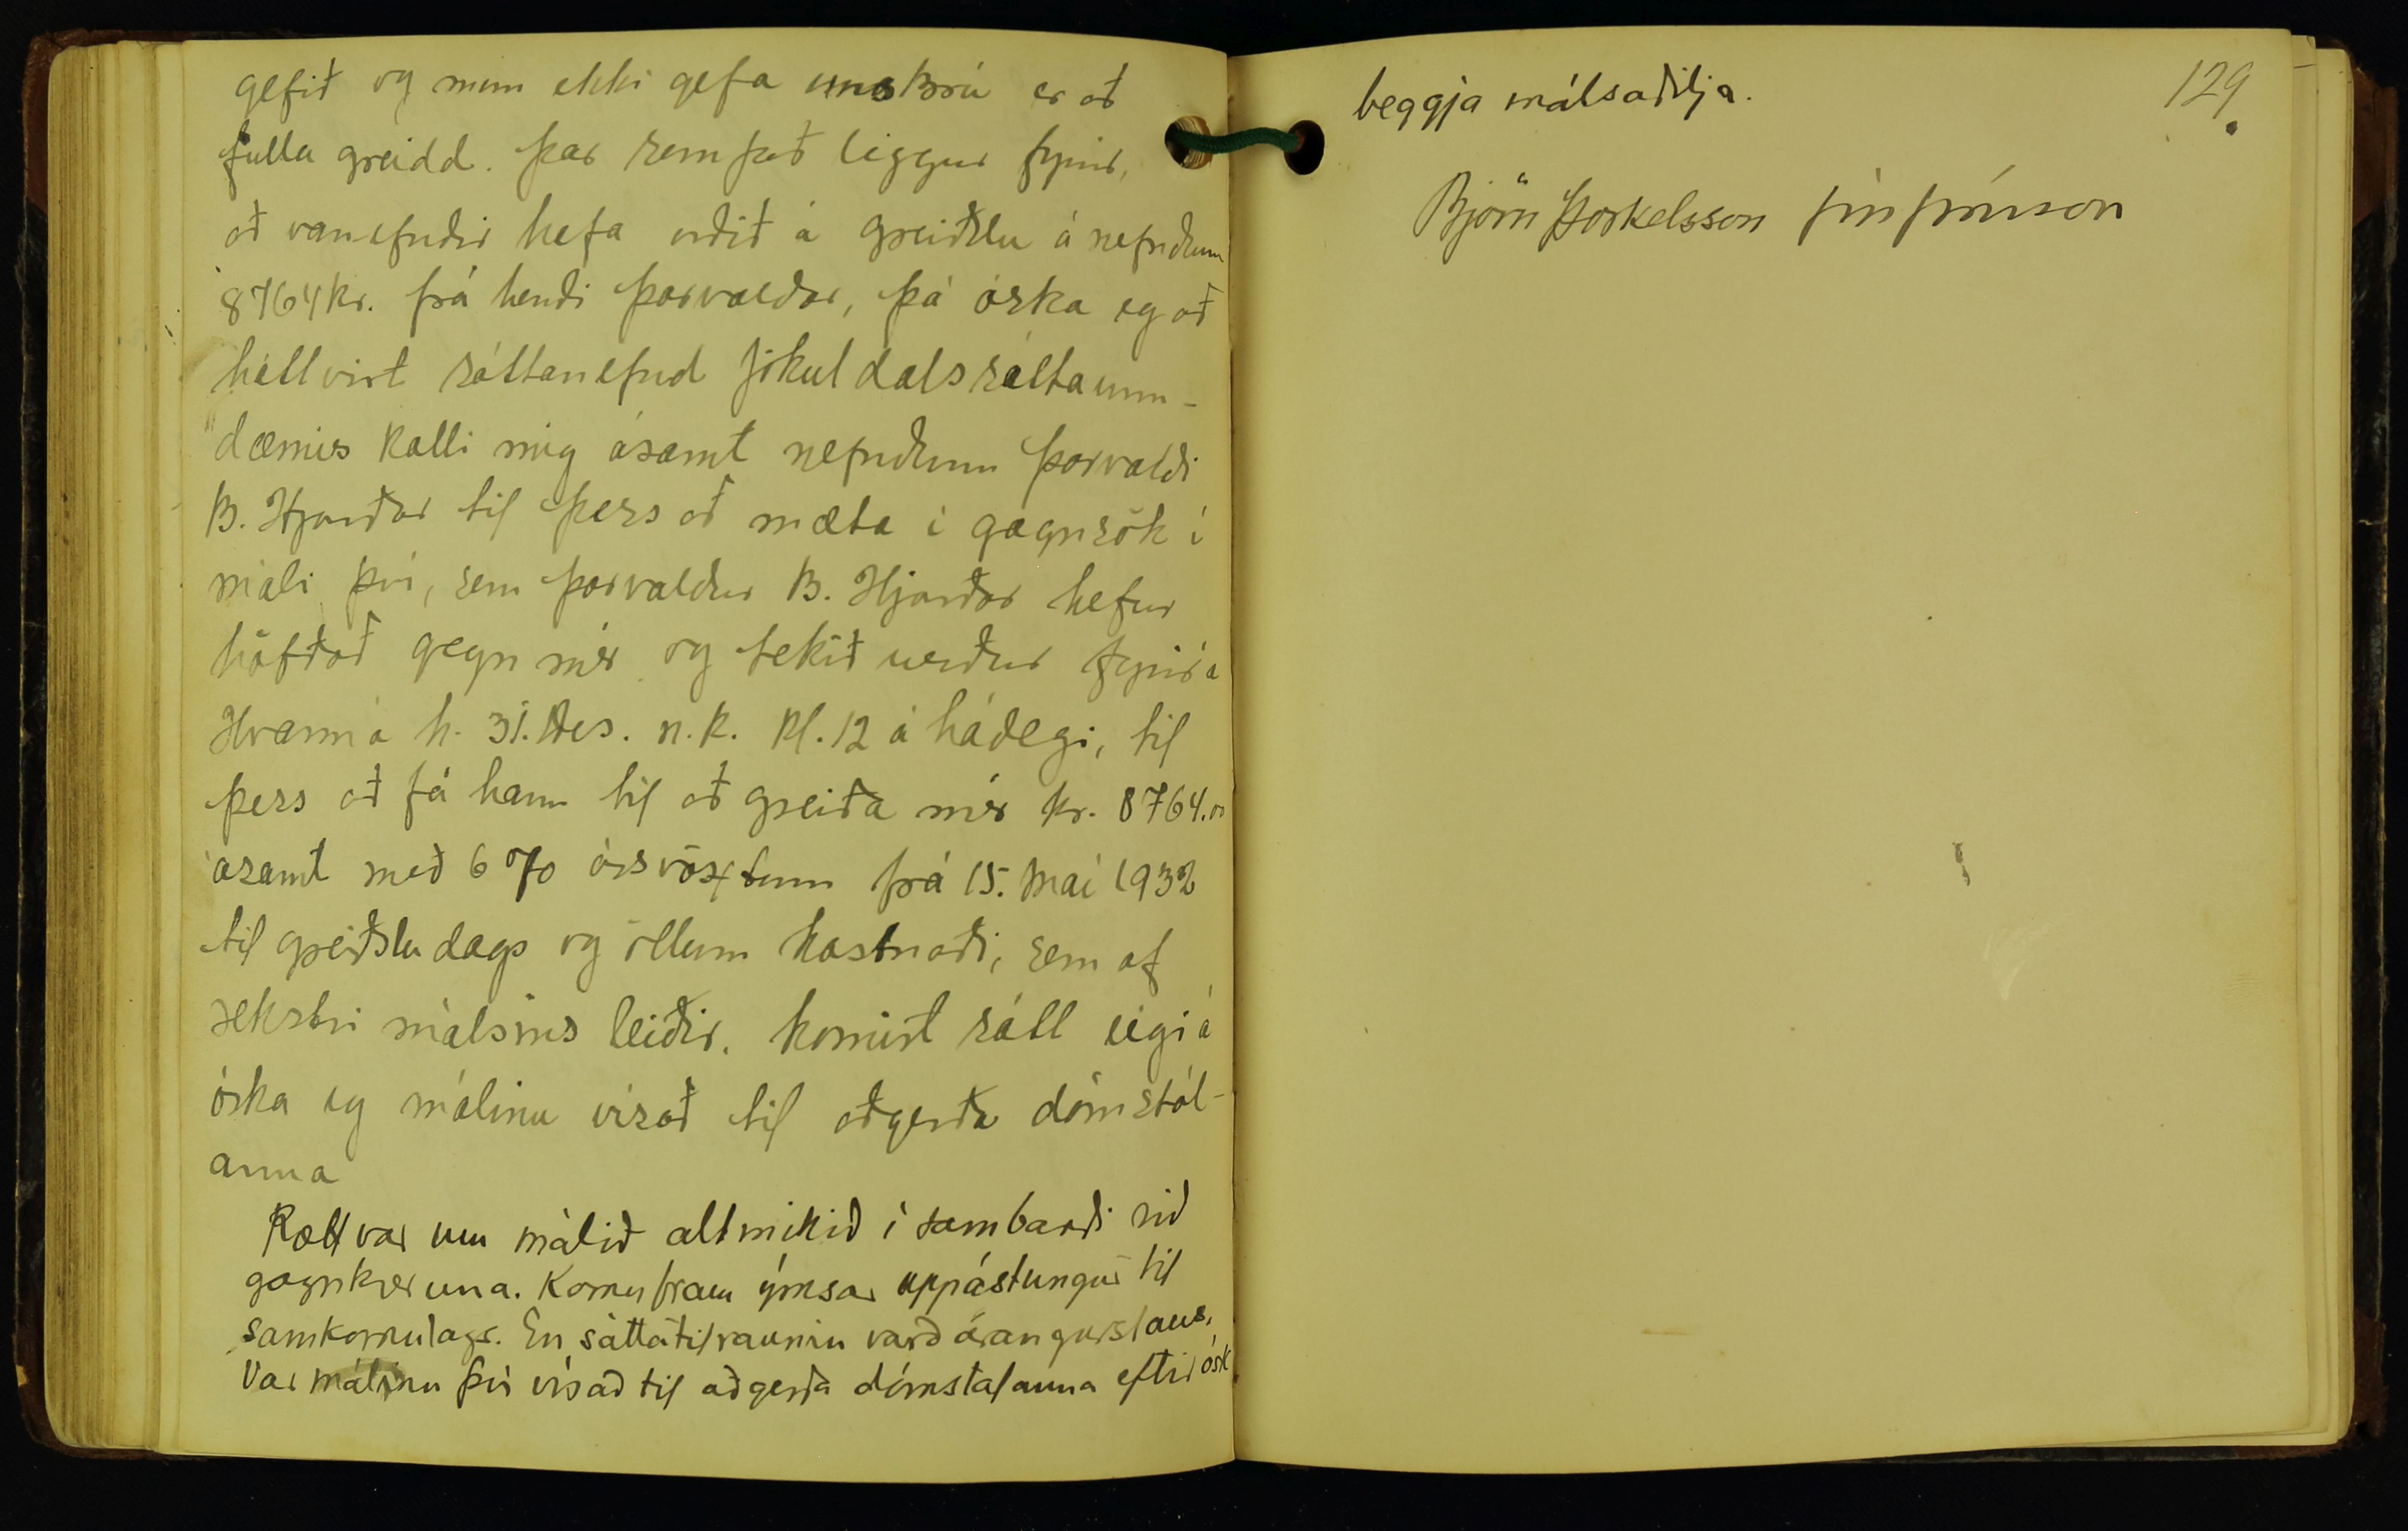 gefið og mun ekki gefa uns Brú er að
fulla greidd. Þar sem það liggur fyrir,
að vanefndir hefa orðið á greiðslu á nefndum
8764 kr. frá hendi Þorvaldar, þá óska eg að
háttvirt sáttanefnd Jökuldalssáttaum-
dæmis kalli mig ásamt nefndum Þorvaldi
B. Hjarðar til þess að mæta í gagnsök í
máli því, sem Þorvaldur B. Hjarðar hefur
höfðað gegn mér og tekið verður fyrir á
Hvanná h. 31. Des. n.k. kl. 12 á hádegi, til
þess að fá hann til að greiða mér kr. 8764.00
ásamt með 6 % ársvöxtum frá 15. Maí 1932
til greiðsludags og öllum kostnaði, sem af
rekstri málsins leiðir. Komist sátt eigi á
óska eg málinu vísað til aðgerða dómstól-
anna
Rætt var um málið allmikið í sambandi við
gagnkæruna. Komu fram ýmsar uppástungur til
samkomulags. En sáttatilraunin varð árangurslaus.
Var málinu því vísað til aðgerða dómstólanna eftir ósk
129
beggja málsaðilja.
Björn Þorkelsson Jón Jónsson